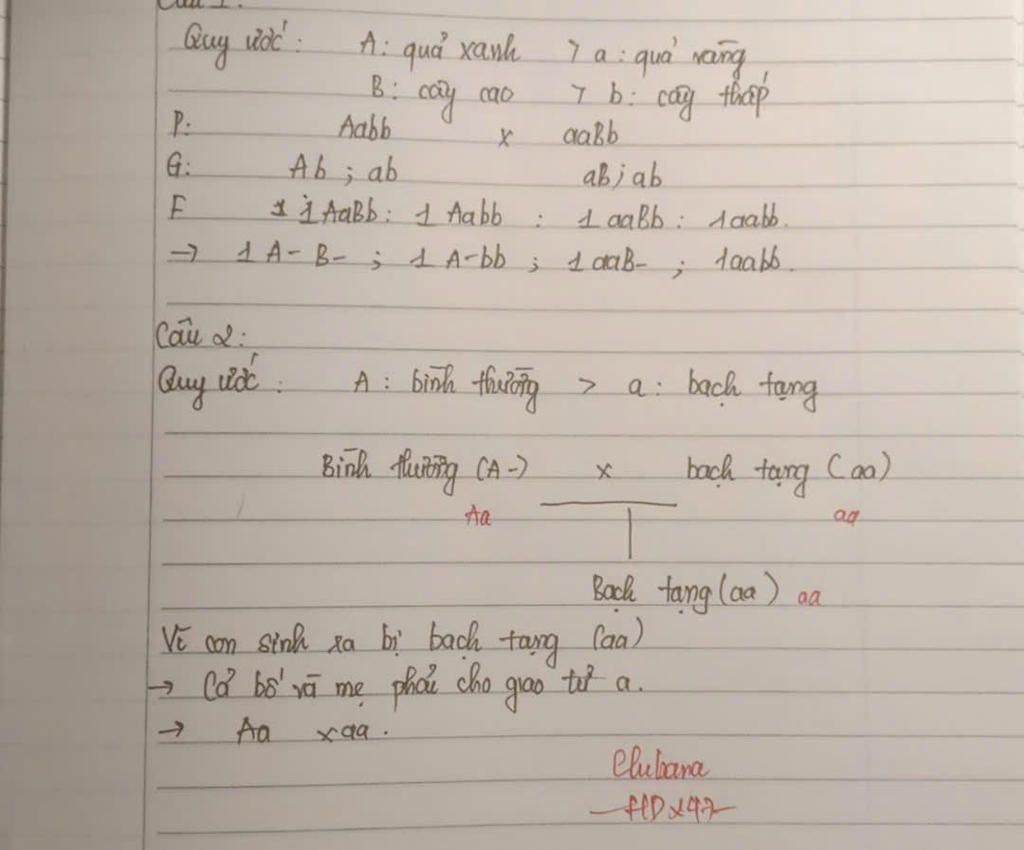 Câu 1:
Quy ước: A: quả xanh > a: quả vàng
B: cây cao > b: cây thấp
P: Aabb x aaBb
G: Ab; ab aB; ab
F 1 1 AaBb: 1 Aabb : 1 aaBb: 1aabb.
→ 1 A-B-; 1 A-bb; 1 aaB-; 1aabb.
Câu 2:
Quy ước: A: bình thường > a: bạch tạng
Bình thường (A-) x bạch tạng (aa)
Aa aa
Bạch tạng (aa) aa
Vì con sinh ra bị bạch tạng (aa)
→ Cả bố và mẹ phải cho giao tử a.
→ Aa x aa.